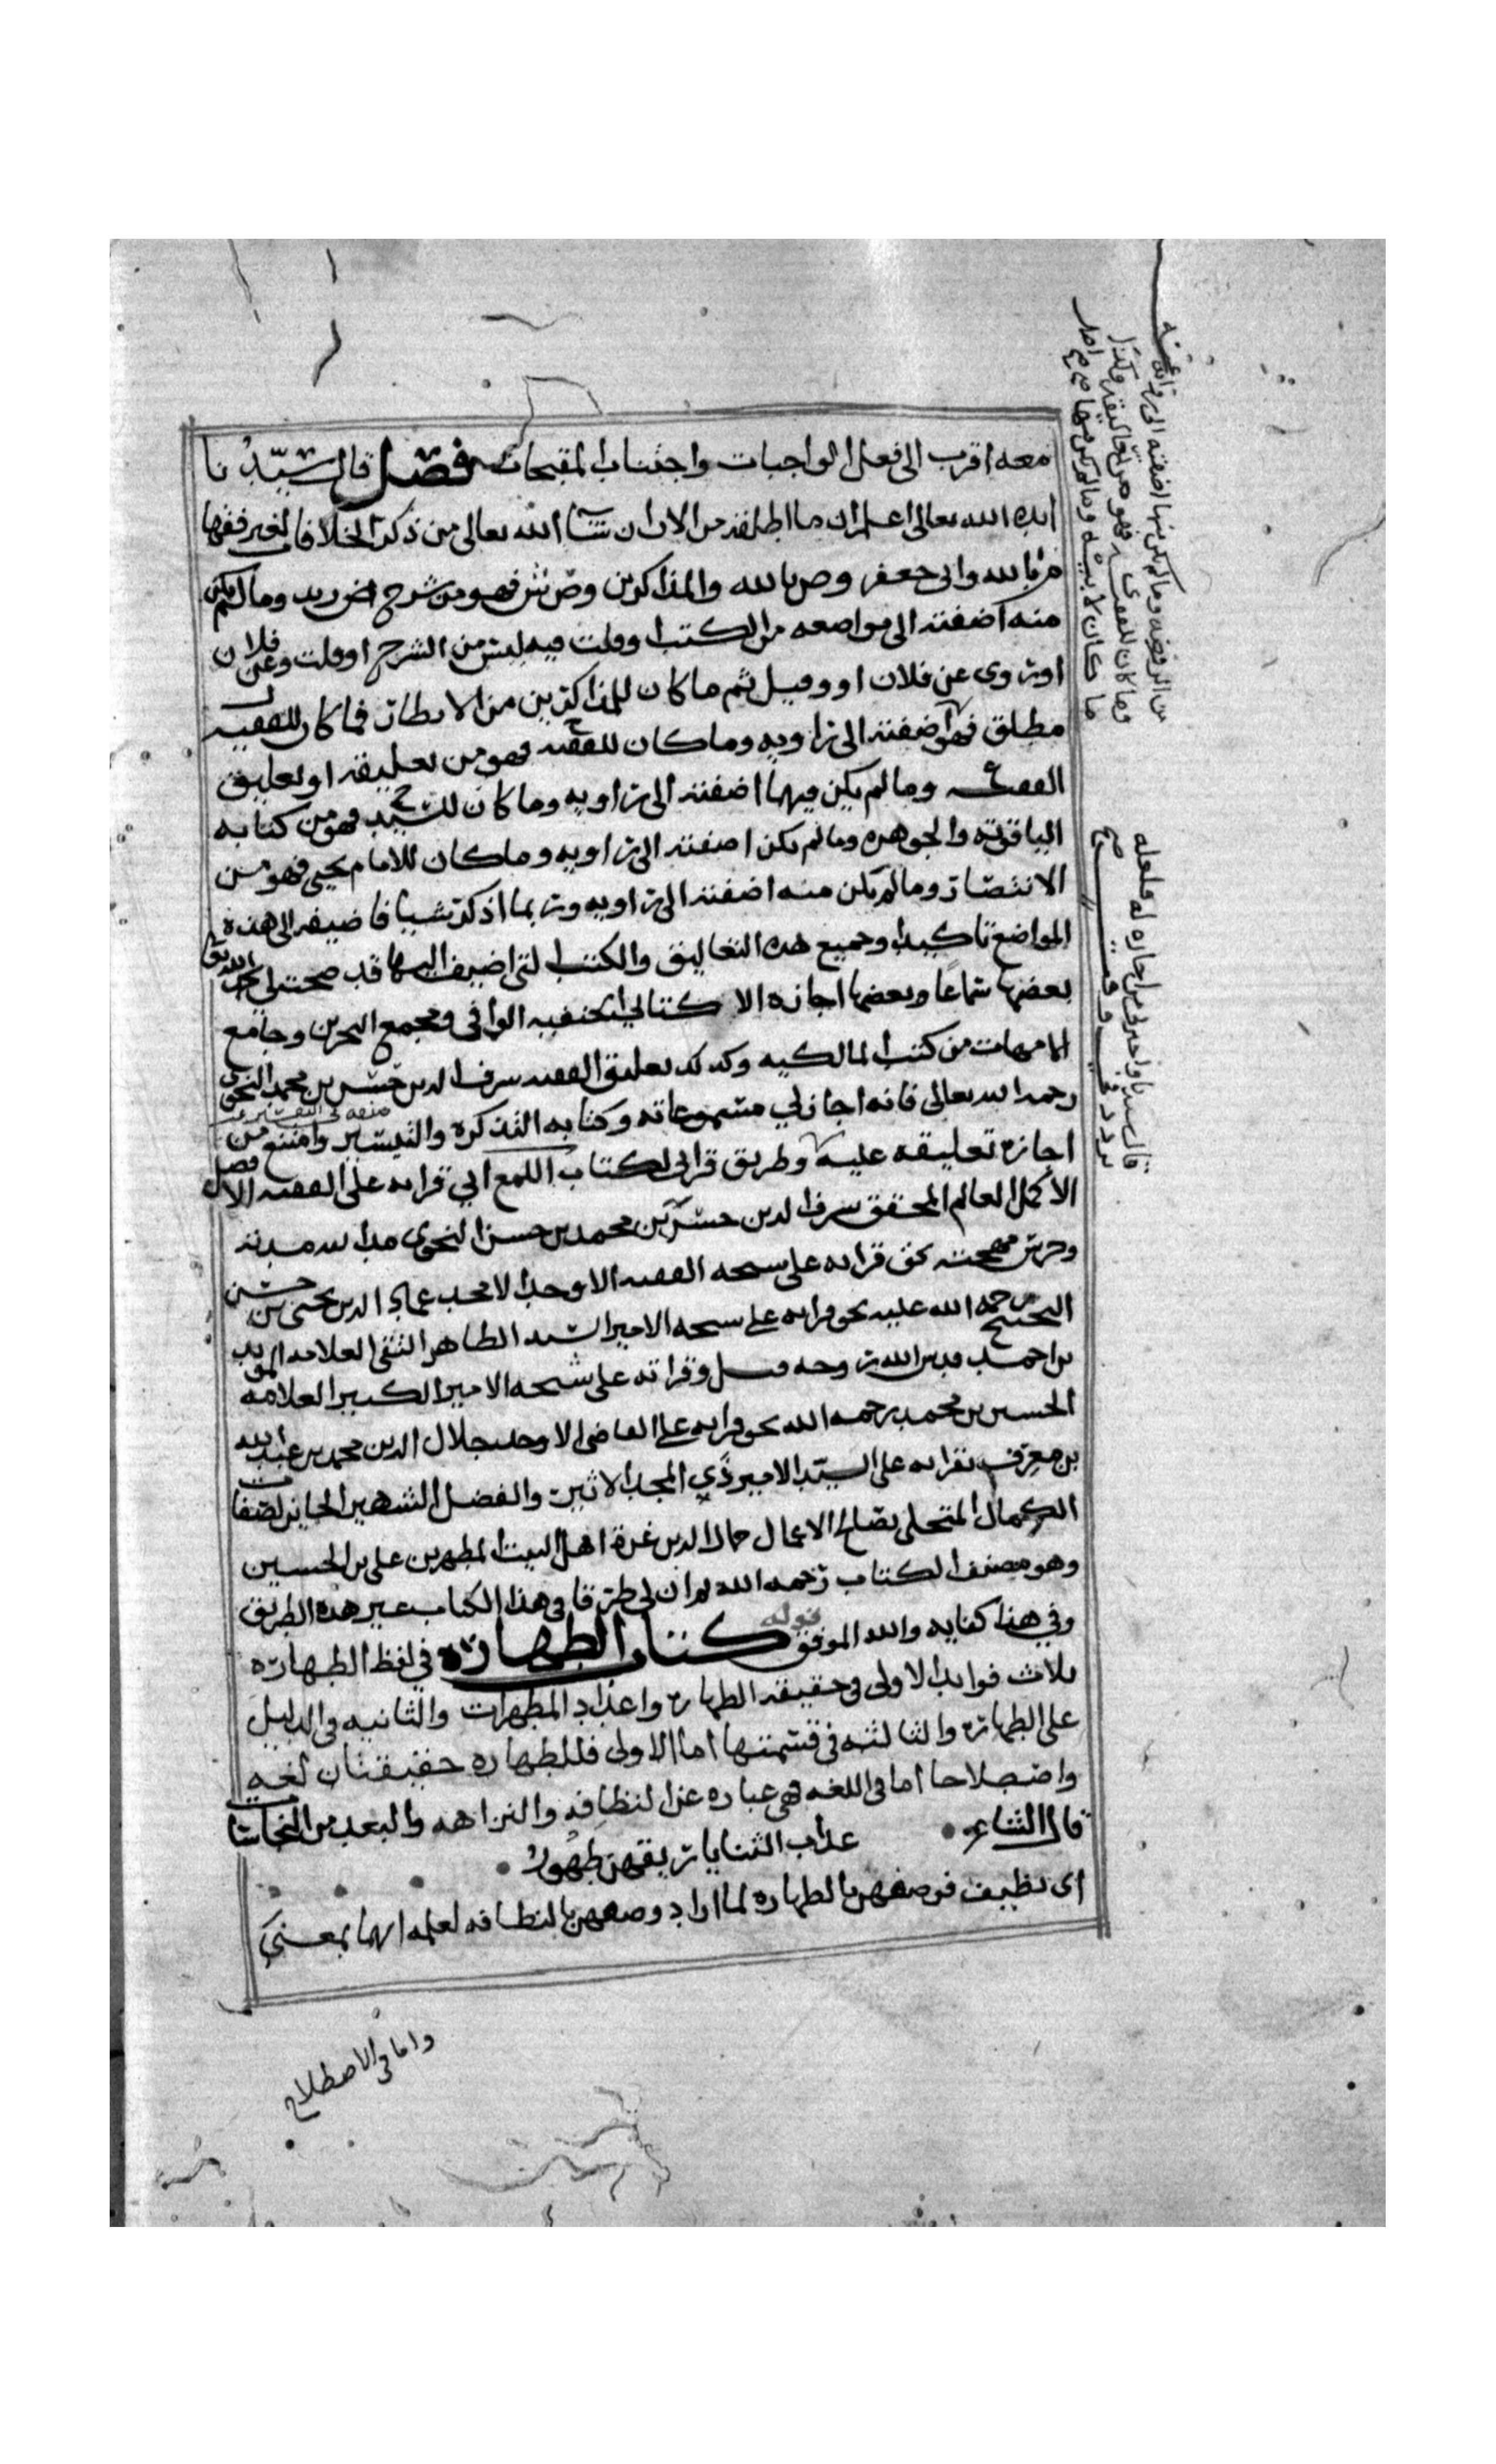 معه اقرب الى فعل الواجبات واجتناب المقبحات فصل قال سيدنا
ايده الله تعالى اعلم ان ما اطلقته من الان ان شا الله تعالى من ذكر الخلافات لغير فقها
م بالله وابي جعفر وص بالله والمذاكرين وض نش فهو من شرح ابو وما لم يكن
منه اضفته الى مواضعه من الكتب او قلت فيه ليس من الشرح او قلت وعن فلان
او روى عن فلان او وقيل ثم ما كان للمذاكرين من الانظار فما كان للفقيه ل
مطلق فهو اضفته الى راويه وما كان للفقيه ح فهو من تعليقه او تعليق
الفقيه ع وما لم يكن فيهما اضفته الى راويه وما كان للسيد ح فهو من كتابه
الياقوتة والجوهره وما لم يكن اضفته الى راويه وما كان للامام يحيى فهو من
الانتصار وما لم يكن منه اضفته الى راويه وربما اذكر شيا فاضيفه الى هذه
المواضع تاكيدا وجميع هذه التعاليق والكتب التي اضيف اليها قد صحت لي
بعضها سماعا وبعضها اجازه الا كتابي الحنفيه الوافي ومجمع البحرين وجامع
الامهات من كتب المالكيه وكذلك تعليق الفقيه شرف الدين حسن بن محمد النحوي
رحمه الله تعالى فانه اجاز لي مسموعاته وكتابه التذكره والتيسير وامتنع من
اجازه تعليقه عليه وطريق قراتي لكتاب اللمع اني قراته على الفقيه الافضل
الاكمل العالم المحقق شرف الدين حسن بن محمد بن حسن النحوي مد الله مدته
وحرس مهجته بحق قراته على شيخه الفقيه الاوحد الامجد عماد الدين يحيى بن حسن
البحيبح رحمه الله عليه بحق قراته على شيخه الامير السيد الطاهر التقي العلامه المويد
بن احمد قدس الله روحه وقراته على شيخه الامير الكبير العلامه
الحسين بن محمد رحمه الله بحق قراته على القاضي الاوحد جلال الدين محمد بن عبد الله
بن معرف بقراته على السيد الامير ذي المجد الاثير والفضل الشهير الحايز لصفات
الكمال المتحلي بصالح الاعمال جمال الدين غرة اهل البيت المطهرين علي بن الحسين
وهو مصنف الكتاب رحمه الله ثم ان لي طرقا في هذا الكتاب غير هذه الطريق
وفي هذا كفايه والله الموفق قوله كتاب الطهاره في لفظ الطهاره
ثلاث فوايد الاولى في حقيقه الطهاره واعداد المطهرات والثانيه في الدليل
على الطهاره والثالثه في قسمتها اما الاولى فللطهاره حقيقتان لغه
واصطلاحا اما في اللغه فهي عباره عن النظافه والنزاهه والبعد من النجاسات
قال الشاعر عذاب الثنايا ريقهن طهور
اي نظيف فوصفهن بالطهاره لما اراد وصفهن بالنظافه لعلمه انهما بمعنى
واما في الاصطلاح